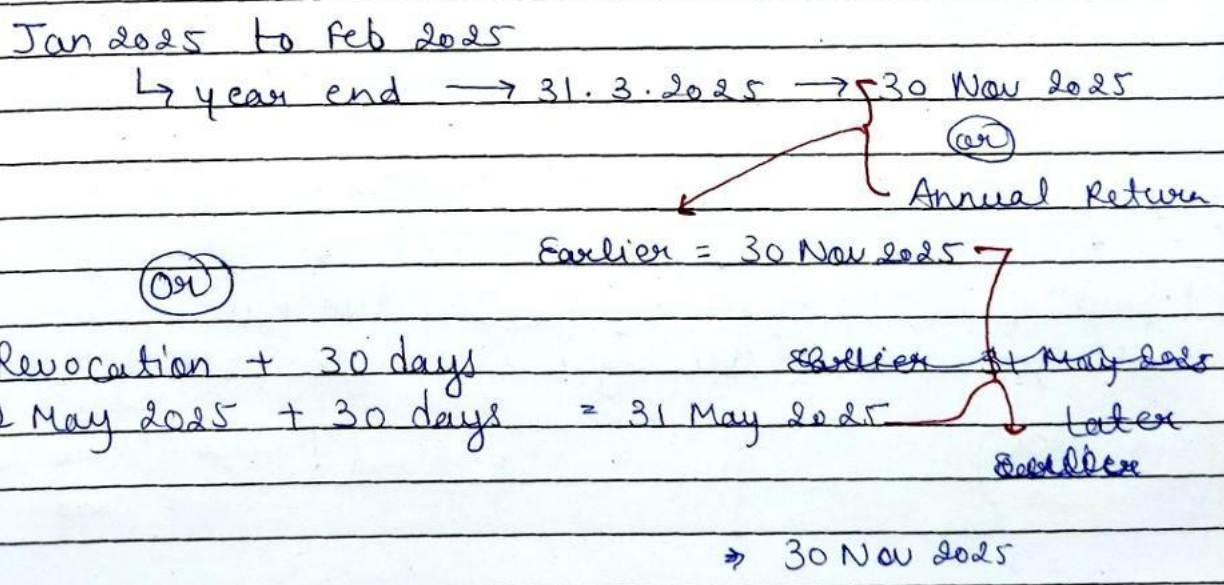 Jan 2025 to Feb 2025
↳ year end → 31.3.2025 → 30 Nov 2025
(or)
Annual Return
Earlier = 30 Nov 2025
(Or)
Revocation + 30 days Earlier 31 May 2025
May 2025 + 30 days = 31 May 2025 Later
Earlier
⇒ 30 Nov 2025